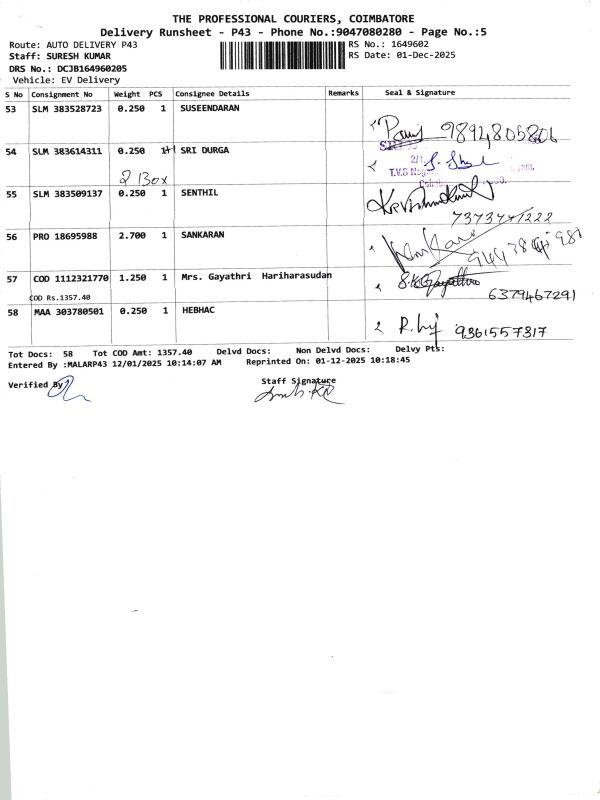 THE PROFESSIONAL COURIERS, COIMBATORE
Delivery Runsheet - P43 - Phone No.:9047080280 - Page No.:5
Route: AUTO DELIVERY P43 RS No.: 1649602
Staff: SURESH KUMAR RS Date: 01-Dec-2025
DRS No.: DCJB164960205
Vehicle: EV Delivery
S No Consignment No Weight PCS Consignee Details Remarks Seal & Signature
53 SLM 383528723 0.250 1 SUSEENDARAN
9894805806
54 SLM 383614311 0.250 1+1 SRI DURGA
2 BOX
T.V.S Nagar
55 SLM 383509137 0.250 1 SENTHIL
7373741222
56 PRO 18695988 2.700 1 SANKARAN
57 COD 1112321770 1.250 1 Mrs. Gayathri Hariharasudan
COD Rs.1357.40 6379467291
58 MAA 303780501 0.250 1 HEBHAC
9361557317
Tot Docs: 58 Tot COD Amt: 1357.40 Delvd Docs: Non Delvd Docs: Delvy Pts:
Entered By :MALARP43 12/01/2025 10:14:07 AM Reprinted On: 01-12-2025 10:18:45
Verified By Staff Signature